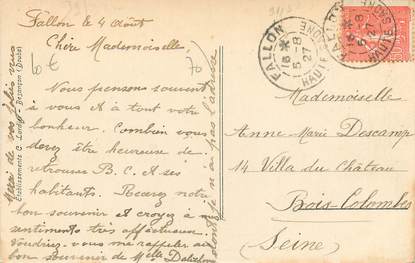 Fallon le 4 Août
Chère Mademoiselle,
Nous pensons souvent
à vous et à tout votre
bonheur. Combien vous
devez être heureuse de
retrouver B. C. et ses
habitants. Recevez notre
bon souvenir et croyez à mes
sentiments très affectueux.
Voudriez-vous me rappeler au
bon souvenir de Melle
Merci de vos jolies vues
n'a pas l'adresse
Etablissements C. Lardier - Besançon (Doubs)
60 €
70
FALLON
HAUTE SAONE
16 *
5 - 8
27
FALLON
HAUTE SAONE
16 *
5 - 8
27
Mademoiselle
Anne Marie Descamp
14 Villa du Château
Bois Colombes
(Seine)